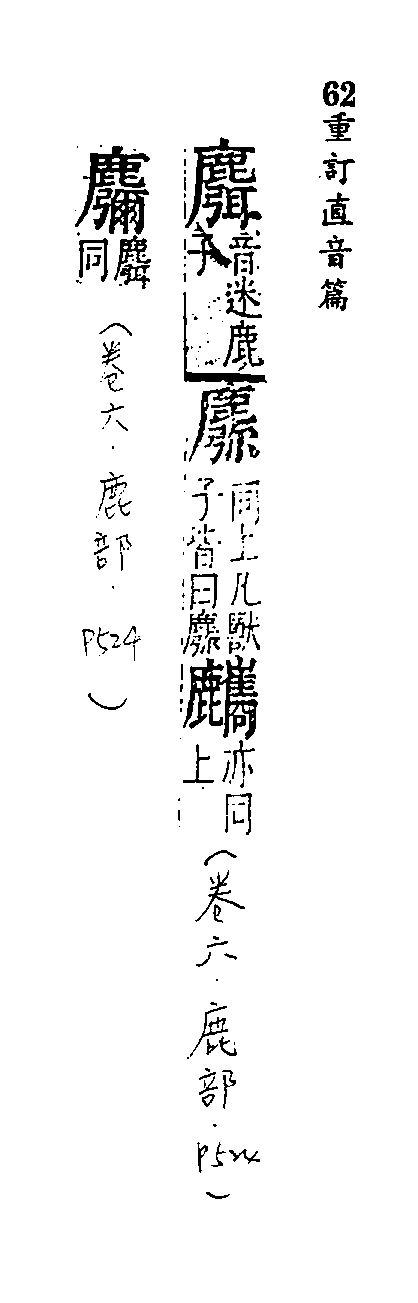 62重訂直音篇
麛音迷鹿子
同上凡獸子皆曰
亦同上
(卷六.鹿部.P524)
麛同
(卷六.鹿部.P524)